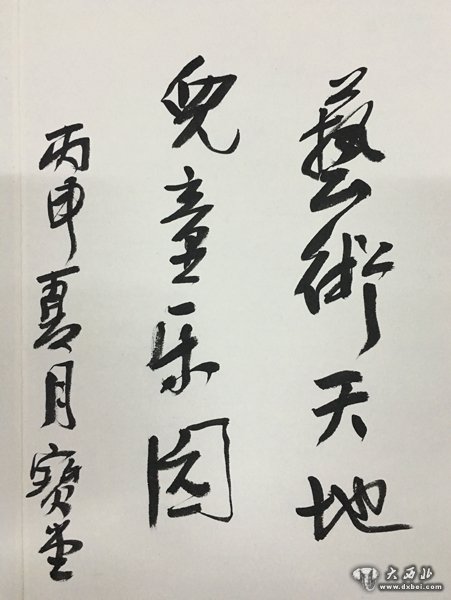 藝術天地
兒童乐园
丙申夏月寶堂
大西北
www.dxbei.com